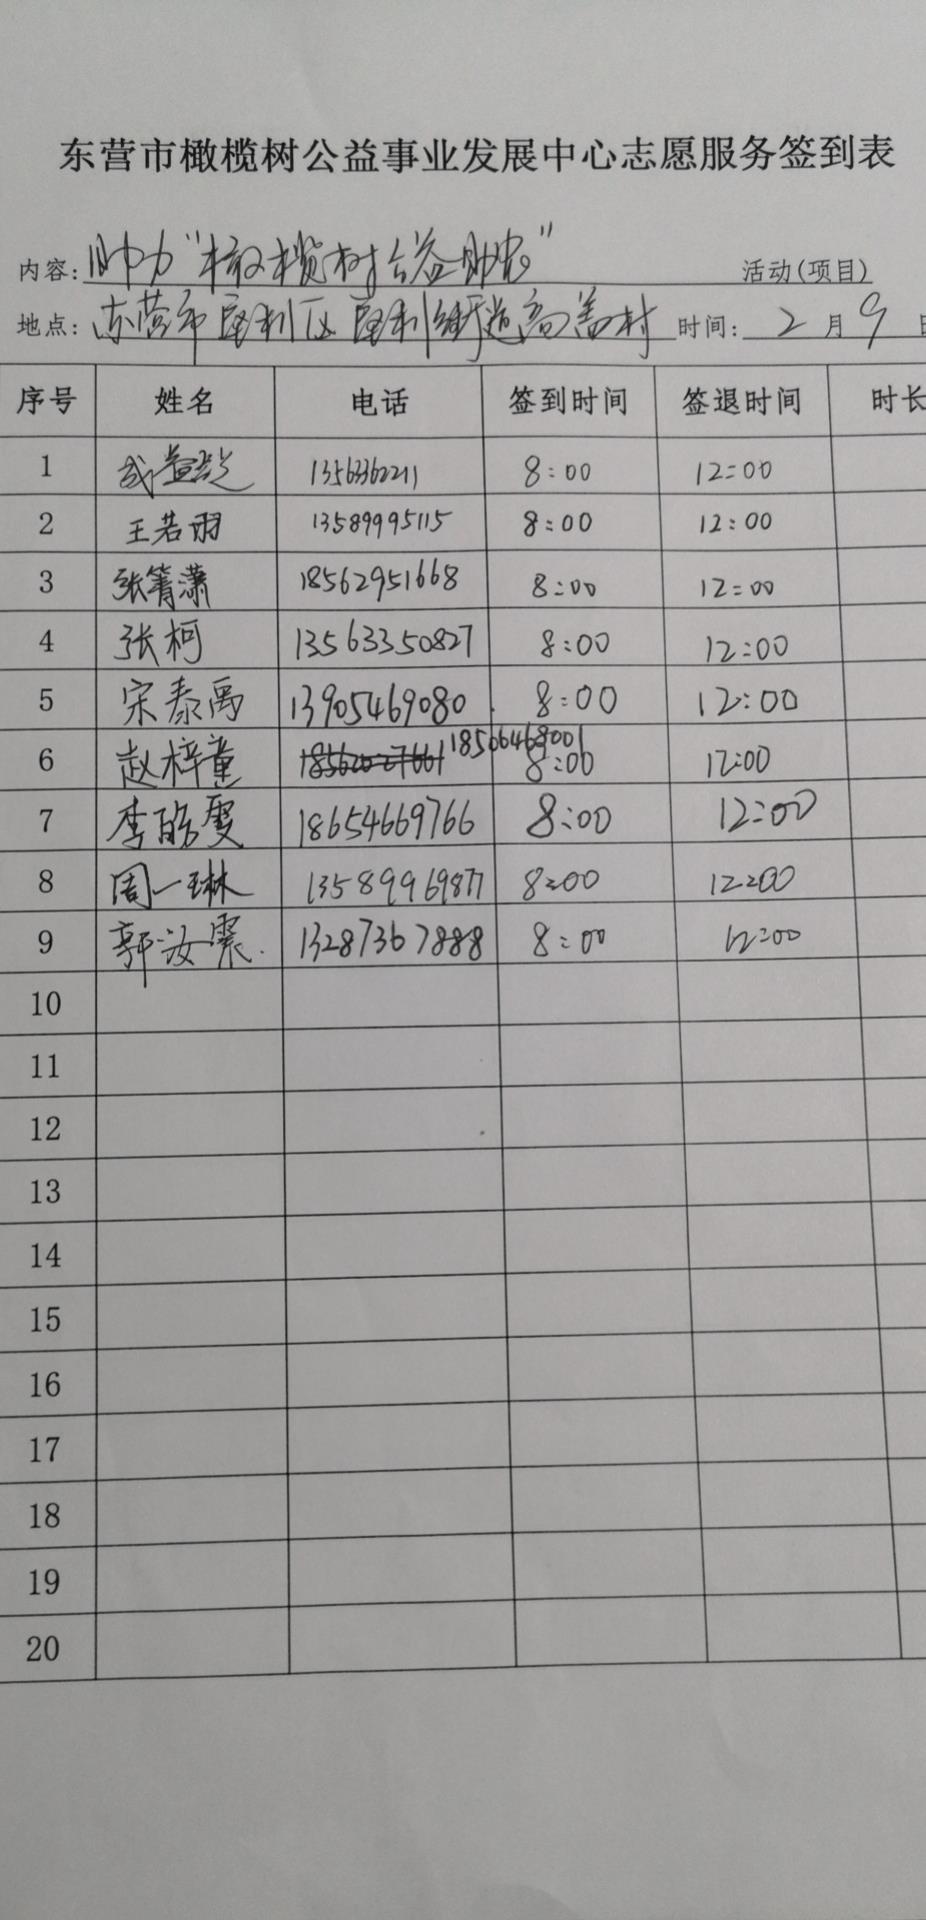 东营市橄榄树公益事业发展中心志愿服务签到表
内容: 助力“橄榄树公益助农” 活动(项目)
地点: 东营市垦利区垦利街道高盖村 时间: 2 月 9 日
序号 姓名 电话 签到时间 签退时间 时长
1 13563362211 8:00 12:00
2 王若羽 13589995115 8:00 12:00
3 张箐潇 18562951668 8:00 12:00
4 张柯 13563350827 8:00 12:00
5 宋泰禹 13905469080 8:00 12:00
6 赵梓童 18506468001 8:00 12:00
7 李皓雯 18654669766 8:00 12:00
8 周一琳 13589969877 8:00 12:00
9 郭汝震 13287367888 8:00 12:00
10
11
12
13
14
15
16
17
18
19
20